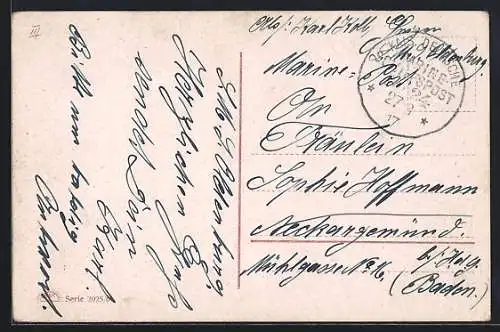 S.M.S. Oldenburg.
Herzlichen Gruß
sendet Dir
Karl.
Bitte um baldige
Antwort.
Serie 2925/6
Abs: Karl
S.M.S. Oldenburg
KAIS. DEUTSCHE
MARINE-
SCHIFFSPOST
27 8
17
Marine-Post.
An
Fräulein
Sophie Hoffmann
Neckargemünd.
Mühlgasse No
(Baden)